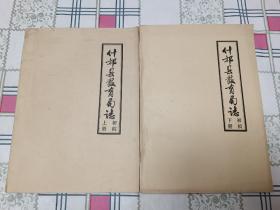 什邡县教育局志
初稿
上册
什邡县教育局志
初稿
下册